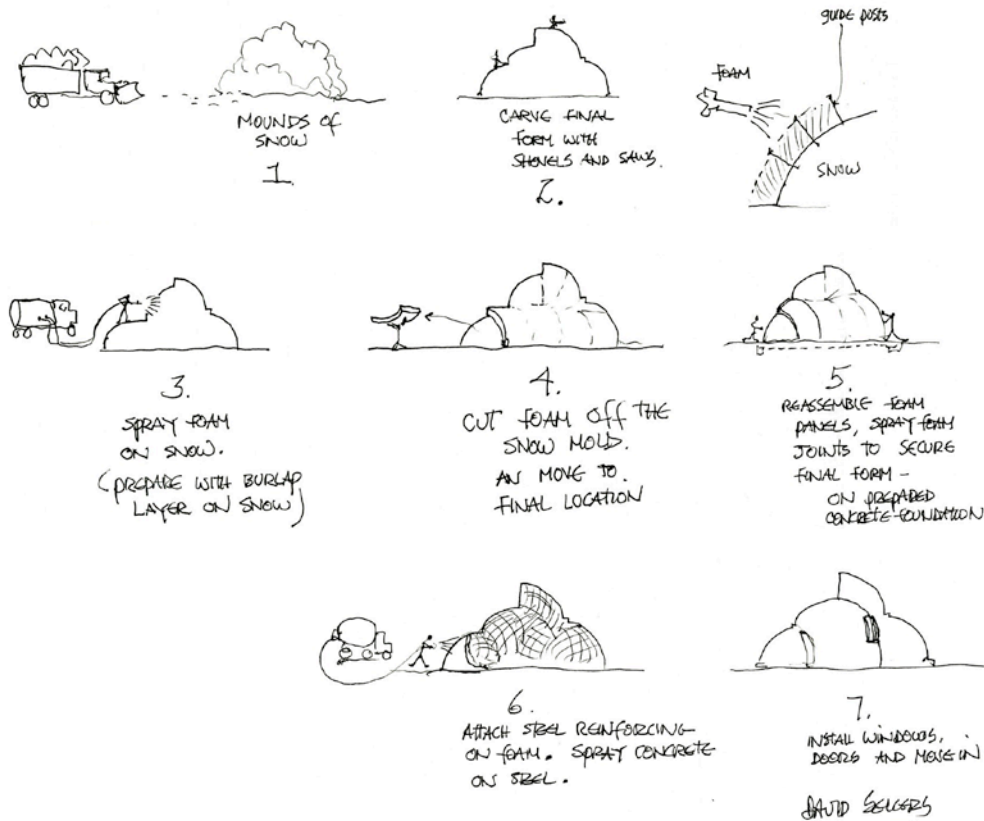 MOUNDS OF
SNOW
1.
CARVE FINAL
FORM WITH
SHOVELS AND SAWS.
2.
GUIDE POSTS
FOAM
SNOW
3.
SPRAY FOAM
ON SNOW.
(PREPARE WITH BURLAP
LAYER ON SNOW)
4.
CUT FOAM OFF THE
SNOW MOLD.
AN MOVE TO.
FINAL LOCATION
5.
REASSEMBLE FOAM
PANELS, SPRAY FOAM
JOINTS TO SECURE
FINAL FORM –
ON PREPARED
CONCRETE FOUNDATION
6.
ATTACH STEEL REINFORCING
ON FOAM. SPRAY CONCRETE
ON STEEL.
7.
INSTALL WINDOWS,
DOORS AND MOVE IN
DAVID SELLERS